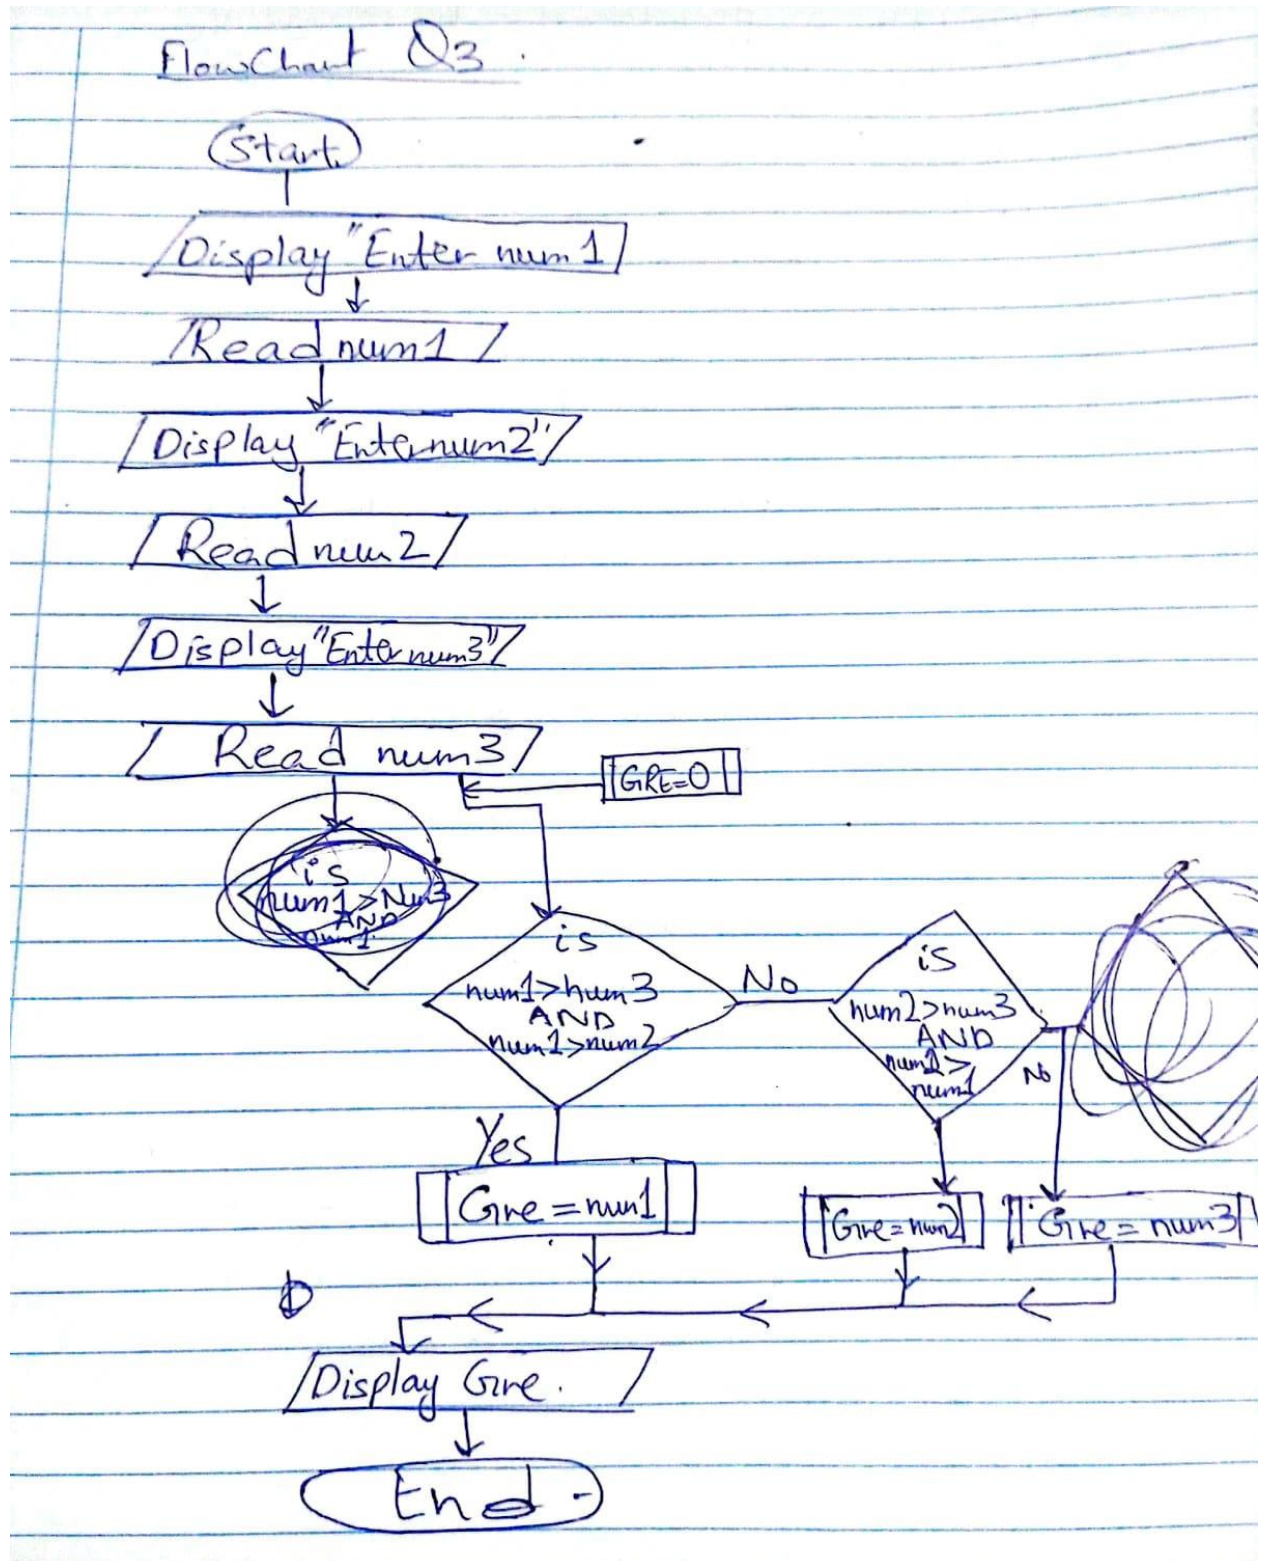 FlowChart Q3.
Start
Display "Enter num1
Read num1
Display "Enter num2"
Read num2
Display "Enter num3"
Read num3
GRE=0
is
num1>Num3
AND
num1
is
num1>num3
AND
num1>num2
No
is
num2>num3
AND
num2>
num1
No
Yes
Gre=num1
Gre=num2
Gre=num3
Display Gre.
End